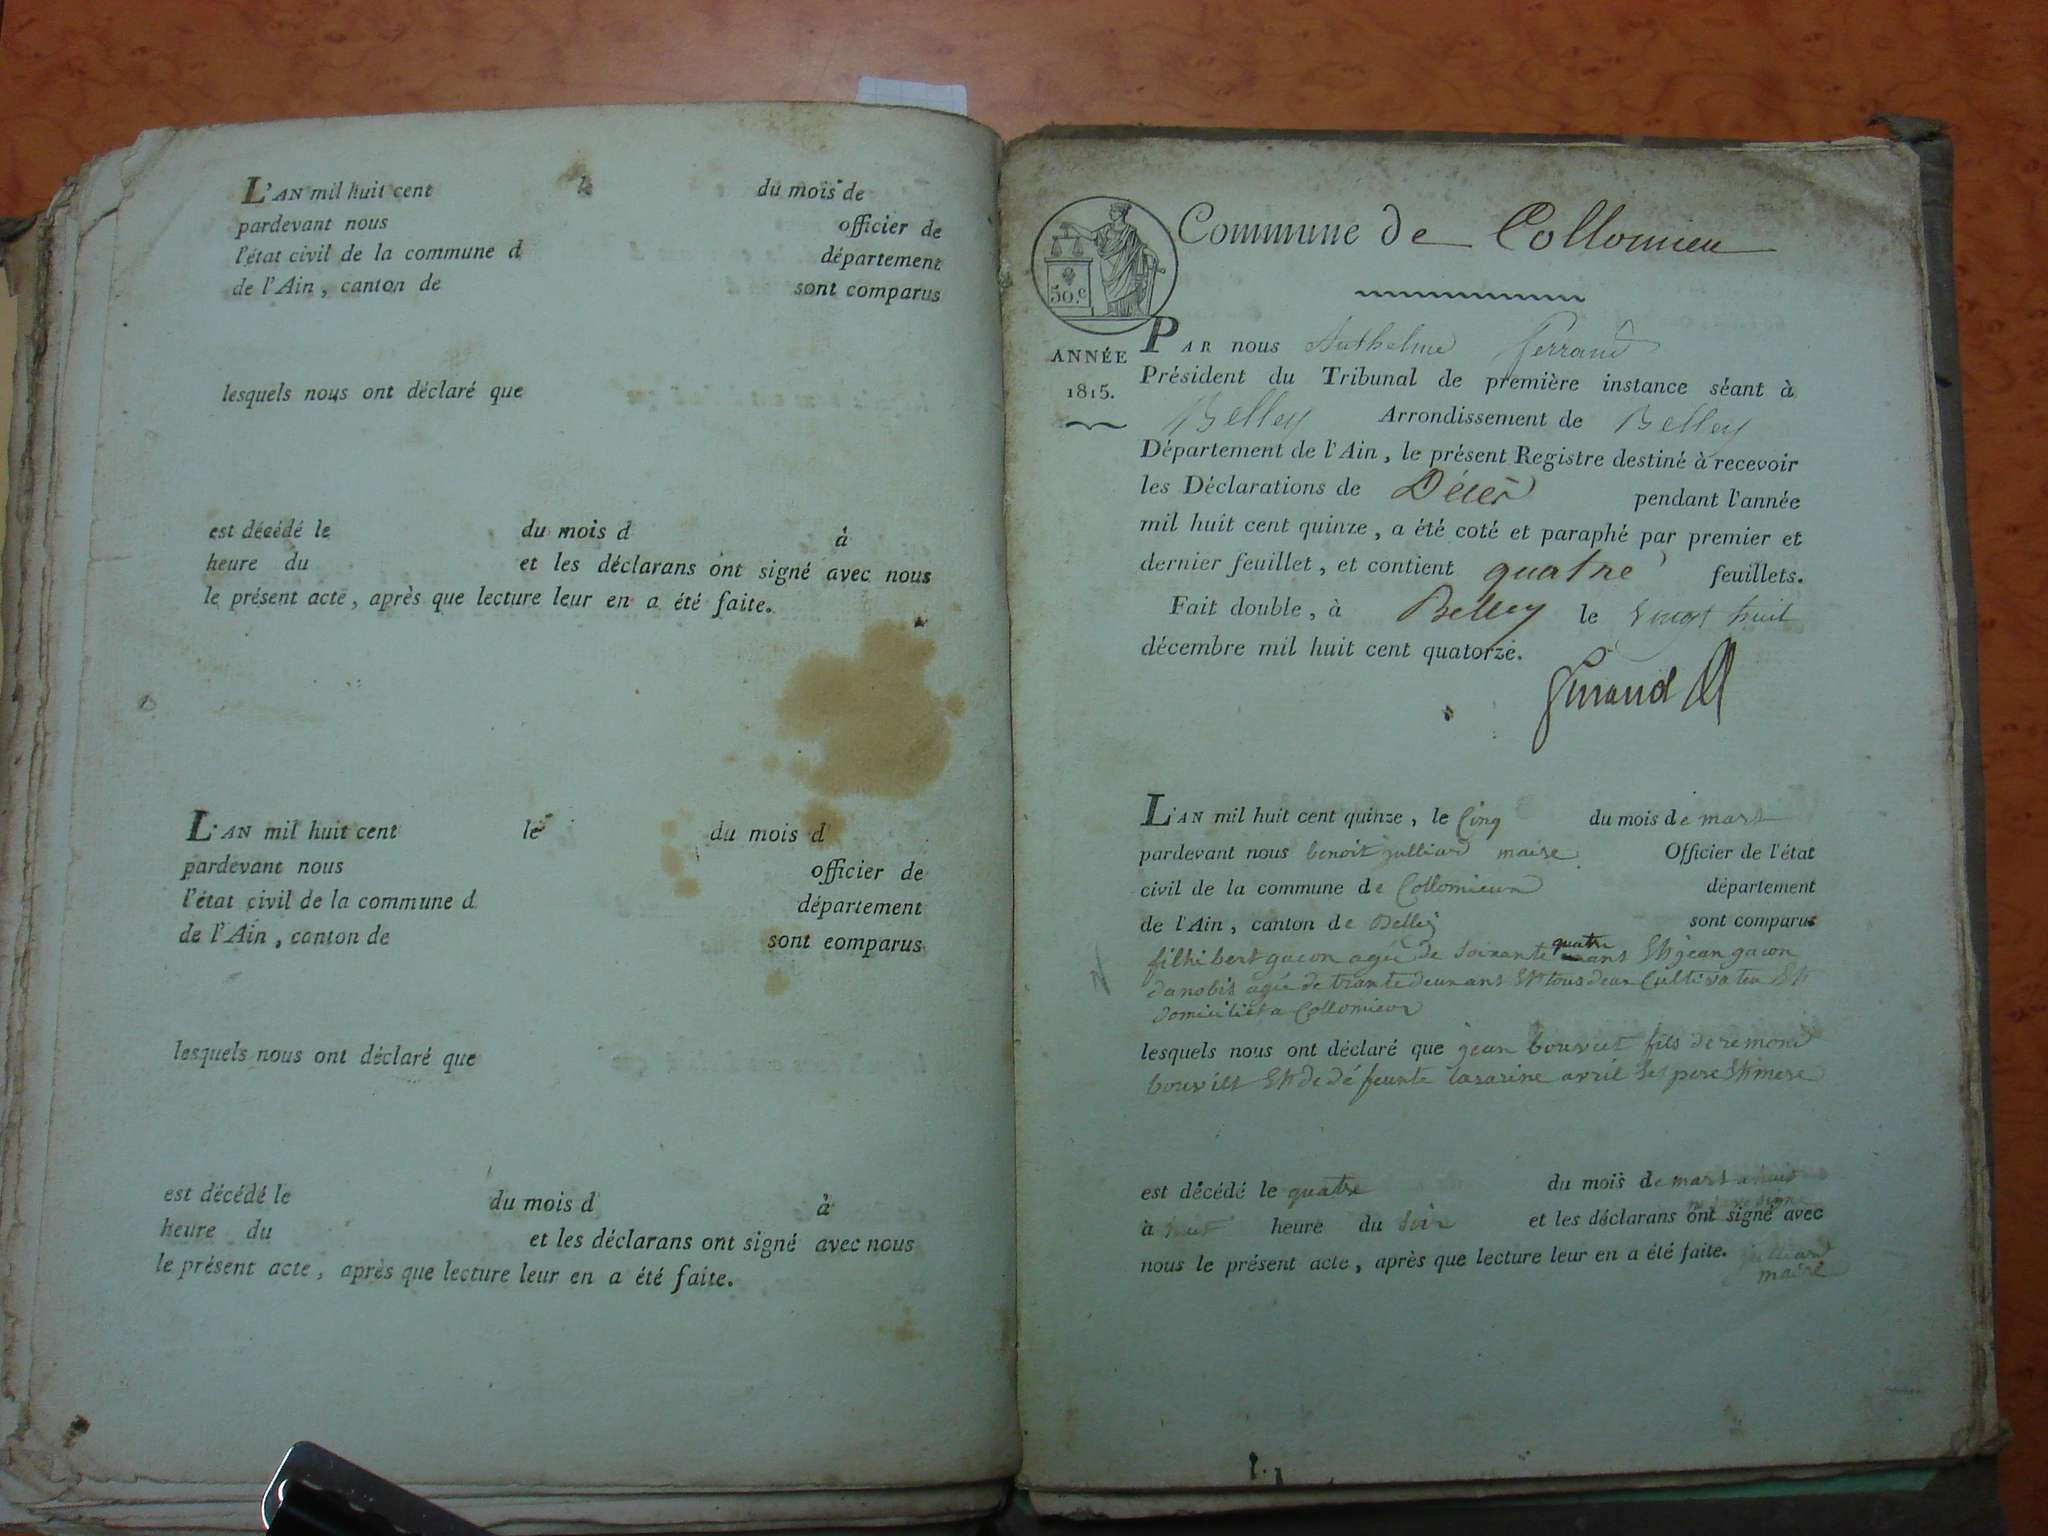 L'AN mil huit cent le du mois de
pardevant nous officier de
l'état civil de la commune d département
de l'Ain, canton de sont comparus
lesquels nous ont déclaré que
est décédé le du mois d à
heure du et les déclarans ont signé avec nous
le présent acte, après que lecture leur en a été faite.
L'AN mil huit cent le du mois d
pardevant nous officier de
l'état civil de la commune d département
de l'Ain, canton de sont comparus
lesquels nous ont déclaré que
est décédé le du mois d à
heure du et les déclarans ont signé avec nous
le présent acte, après que lecture leur en a été faite.
Commune de Collomieu
50.c
ANNÉE
1815.
PAR nous Anthelme Ferrand
Président du Tribunal de première instance séant à
Belley Arrondissement de Belley
Département de l'Ain, le présent Registre destiné à recevoir
les Déclarations de Décès pendant l'année
mil huit cent quinze, a été coté et paraphé par premier et
dernier feuillet, et contient quatre feuillets.
Fait double, à Belley le vingt huit
décembre mil huit cent quatorze.
L'AN mil huit cent quinze, le cinq du mois de mars
pardevant nous benoit julliard maire Officier de l'état
civil de la commune de Collomieux département
de l'Ain, canton de Belley sont comparus
filhibert gacon agée de soixante quatre ans Et jean gacon
danobis agée de trante deux ans Et tous deux Cultivateu Et
domiciliet a Collomieux
lesquels nous ont déclaré que jean bouviet fils de remond
bouviet Et de défeunte lazarine avril Ses pere Et mere
est décédé le quatre du mois de mars a huit
à huit heure du soir et les déclarans ont signé avec
nous le présent acte, après que lecture leur en a été faite. julliard
maire